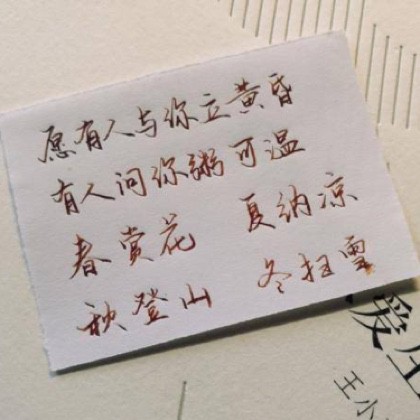 愿有人与你立黄昏
有人问你粥可温
春赏花 夏纳凉
秋登山 冬扫雪
爱
王小